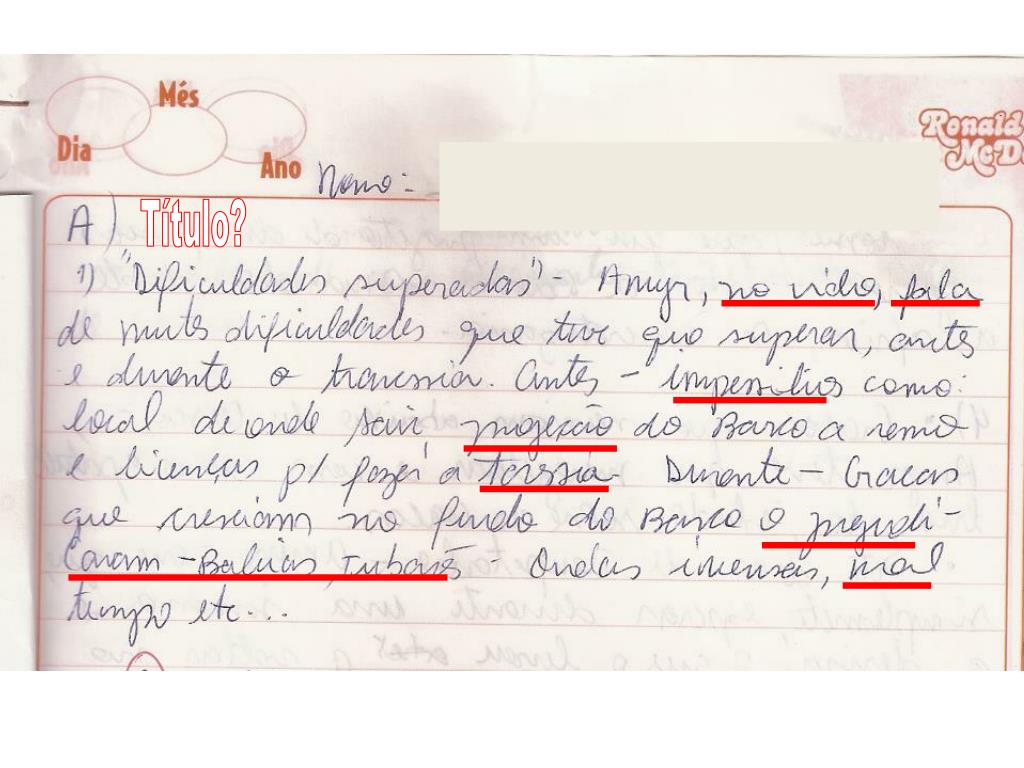 Mês
Dia
Ano
Ronald
McD
Nome:
A) Título?
1) "Dificuldades superadas" - Amyr, no vídio, fala
de muitas dificuldades que teve que superar, antes
e durante a travessia. Antes - impessilios como:
local de onde sair, progeção do Barco a remo
e licenças p/ fazer a torssia. Durante - Cracas
que cresciam no fundo do Barco o prejudi-
caram - Baleias, Tubarões - Ondas imensas, mal
tempo etc...